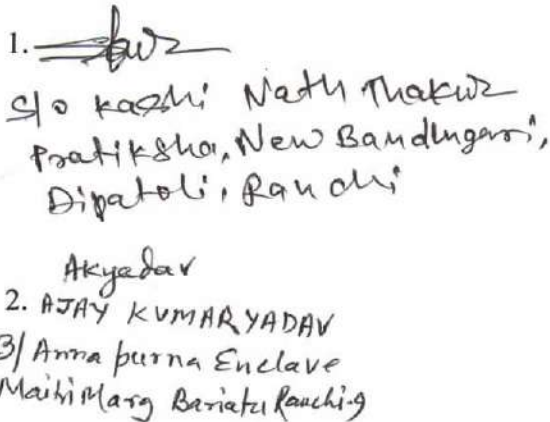 1.
S/o Kashi Nath Thakur
Pratiksha, New Bandhgari,
Dipatoli, Ranchi
Akyadav
2. AJAY KUMAR YADAV
3/ Annapurna Enclave
Maithi Marg Bariatu Ranchi-9